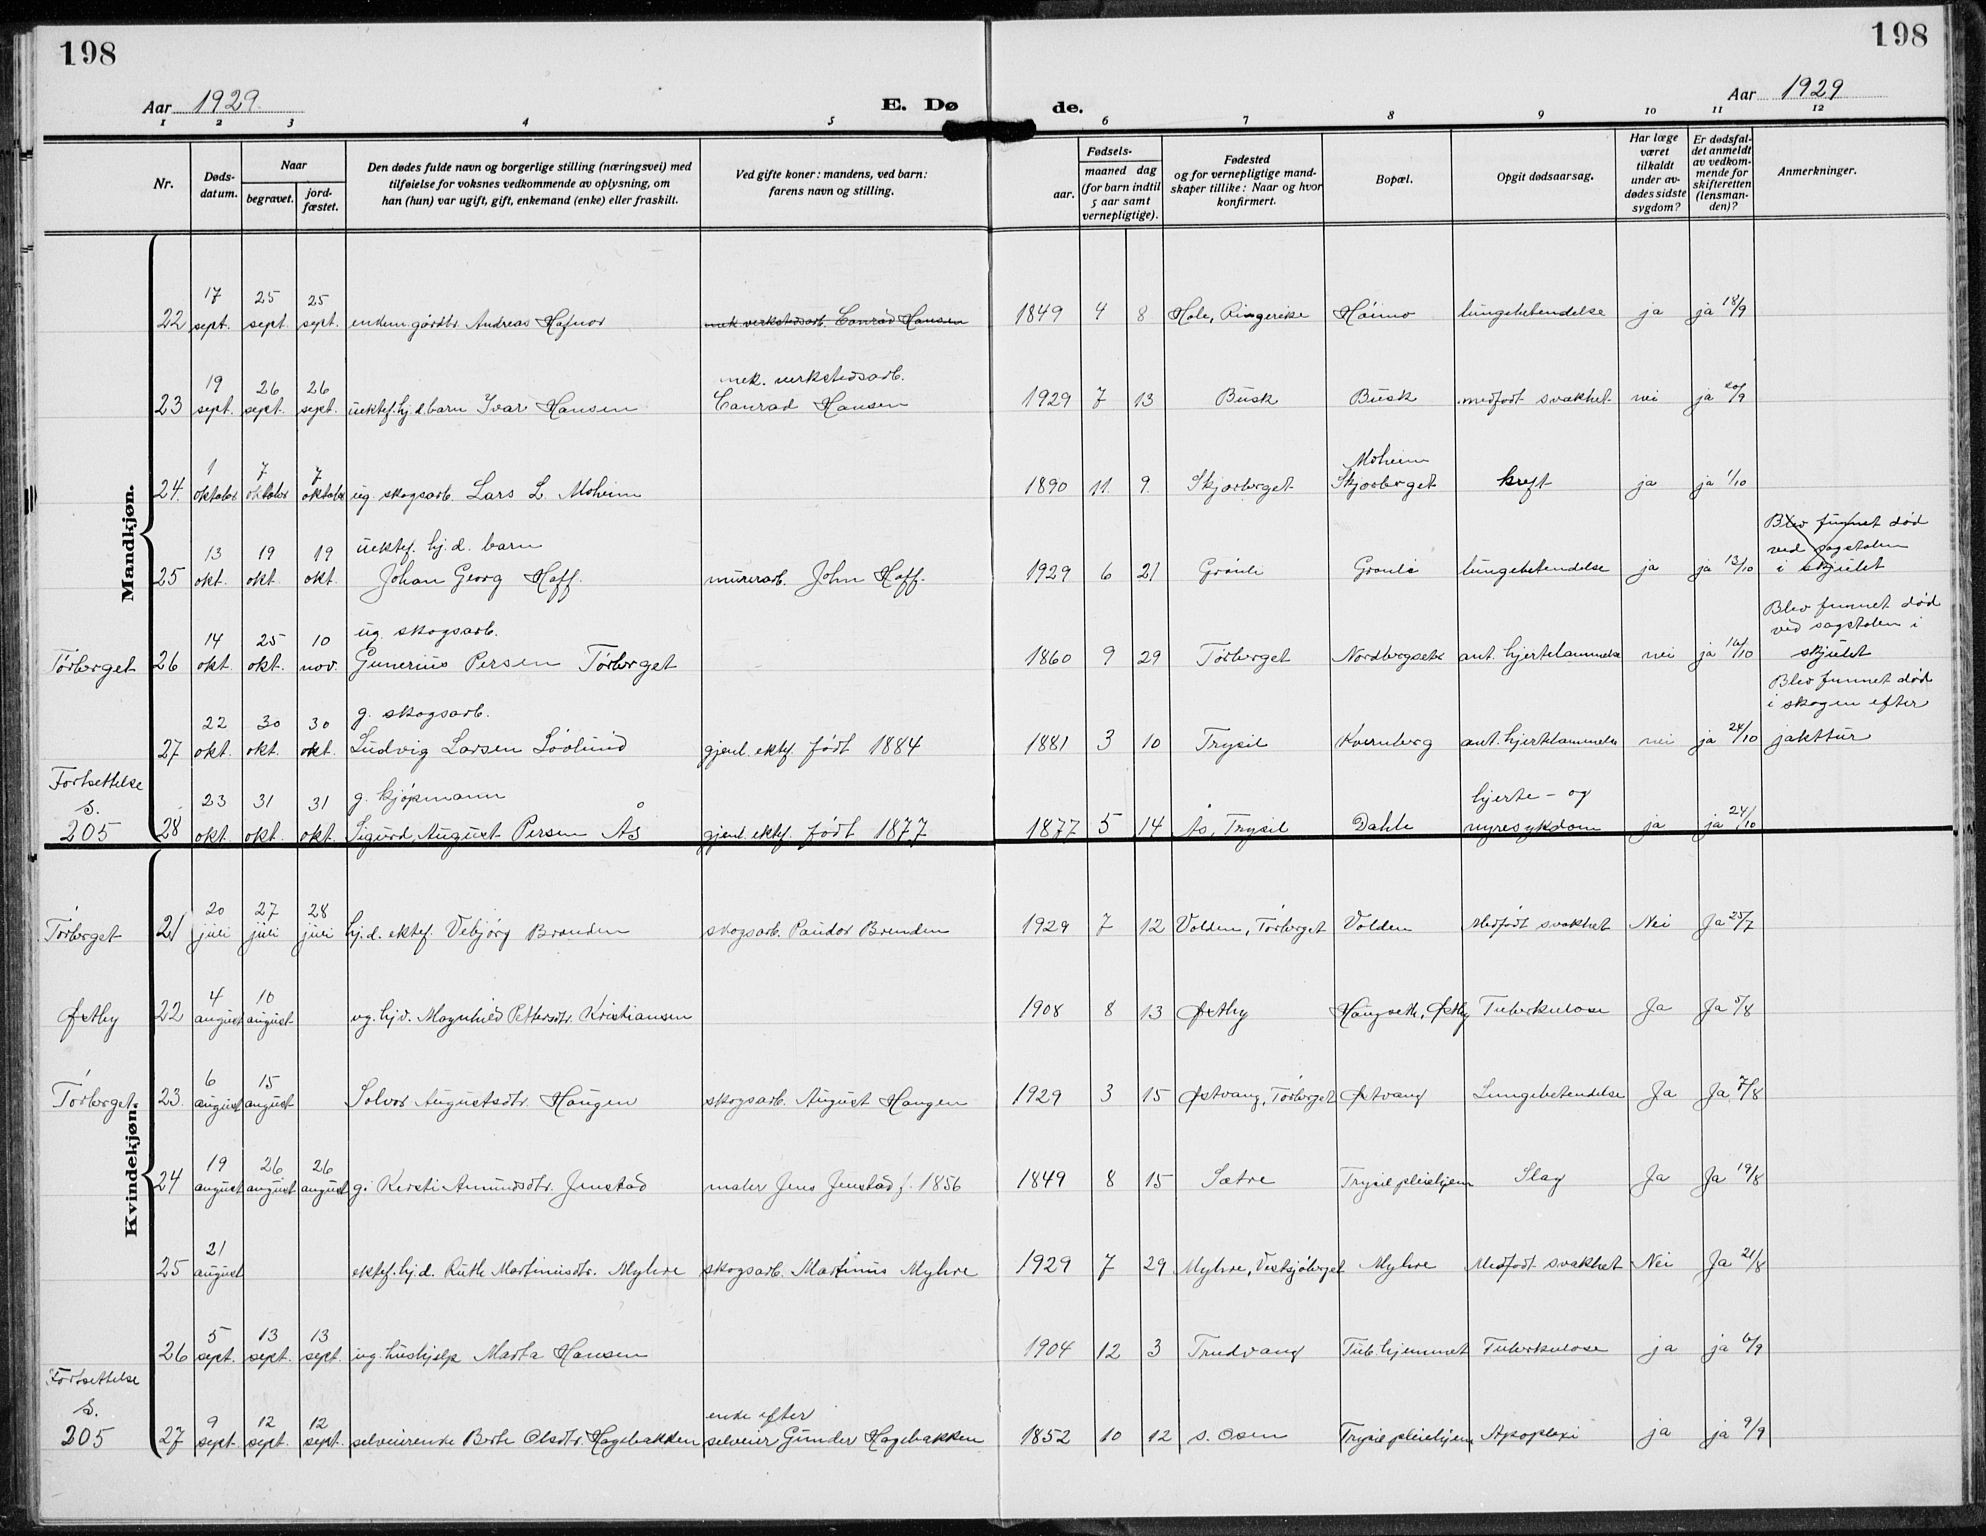 198
198
Aar 1929.
E. Dø
de.
Aar 1929
1 2 3 4 5 6 7 8 9 10 11 12
Nr.
Døds-
datum.
Naar
begravet.
jord-
fæstet.
Den dødes fulde navn og borgerlige stilling (næringsvei) med
tilføielse for voksnes vedkommende av oplysning, om
han (hun) var ugift, gift, enkemand (enke) eller fraskilt.
Ved gifte koner: mandens, ved barn:
farens navn og stilling.
Fødsels-
aar.
maaned dag
(for barn indtil
5 aar samt
vernepligtige).
Fødested
og for vernepligtige mand-
skaper tillike: Naar og hvor
konfirmert.
Bopæl.
Opgit dødsaarsag.
Har læge
været
tilkaldt
under av-
dødes sidste
sygdom?
Er dødsfal-
det anmeldt
av vedkom-
mende for
skifteretten
(lensman-
den)?
Anmerkninger.
Mandkjøn.
17 25 25
22 sept. sept. sept. enkem. gårdbr. Andreas Hafnor mek. verkstedsarb. Conrad Hansen 1849 4 8 Hole, Ringerike lungebetendelse ja ja 18/9
19 26 26 mek. verkstedsarb.
23 sept. sept. sept. uektef. hj.d. barn Ivar Hansen Conrad Hansen 1929 7 13 Busk Busk medfødt svakhet nei ja 20/9
1 7 7 Moheim
24. oktober oktober oktober ug. skogsarb. Lars L. Moheim 1890 11. 9. Skjærberget Skjærberget kreft ja ja 1/10
13 19 19 uektef. hj.d. barn Blev funnet død
ved sagstolen
25 okt. okt. okt. Johan Georg Hoff. murerarb. John Hoff. 1929 6 21 Grønli Grønli lungebetendelse ja ja 13/10 i skjulet
14 25 10 ug. skogsarb. Blev funnet død
ved sagstolen i
Tørberget 26 okt. okt. nov. Gunerius Persen Tørberget 1860 9 29 Tørberget Nordbergsete ant. hjertelammelse nei ja 16/10 skjulet
22 30 30 g. skogsarb. Blev funnet død
i skogen efter
27 okt. okt. okt. Ludvig Larsen Løvlund gjenl. ektef. født 1884 1881 3 10 Trysil Kvernberg ant. hjertelammelse nei ja 24/10 jakttur
Fortsettelse
s.
205
23 31 31 g. kjøpmann hjerte- og
28 okt. okt. okt. Sigurd August Persen Ås gjenl. ektef. født 1877 1877 5 14 Ås, Trysil Dahle nyresykdom ja ja 24/10
Kvindekjøn.
20 27 28
Tørberget 21 juli juli juli hj.d. ektef. Vebjørg Brenden skogsarb. Paudor Brenden 1929 7 12 Volden, Tørberget Volden Medfødt svakhet Nei Ja 25/7
4 10
Østby 22 august august ug. hj.d. Magnhild Pettersdtr. Kristiansen 1908 8 13 Østby Haugseth, Østby Tuberkulose Ja Ja 5/8
6 15
Tørberget 23. august august Solvor Augustsdtr. Haugen skogsarb. August Haugen 1929 3 15 Østvang, Tørberget Østvang Lungebetendelse Ja Ja 7/8
19 26 26
24 august august august g. Kersti Amundsdtr. Jenstad maler Jens Jenstad f. 1856 1849 8 15 Sætre Trysil pleiehjem Slag Ja Ja 19/8
21
25 august ektef. hj.d. Ruth Martinusdtr. Myhre skogsarb. Martinus Myhre 1929 7 29 Myhre, Vestsjøberget Myhre Medfødt svakhet Nei Ja 21/8
5 13 13
26 sept. sept. sept. ug. hushjelp Marta Hansen 1904 12 3 Trudvang Tub. hjemmet Tuberkulose ja ja 6/9
Fortsettelse
s.
205
9 12 12 enke efter
27 sept. sept. sept. selveierenke Berte Olsdtr. Hagebakken selveier Gunder Hagebakken 1852 10 12 S. Osen Trysil pleiehjem Apoplexi ja ja 9/9